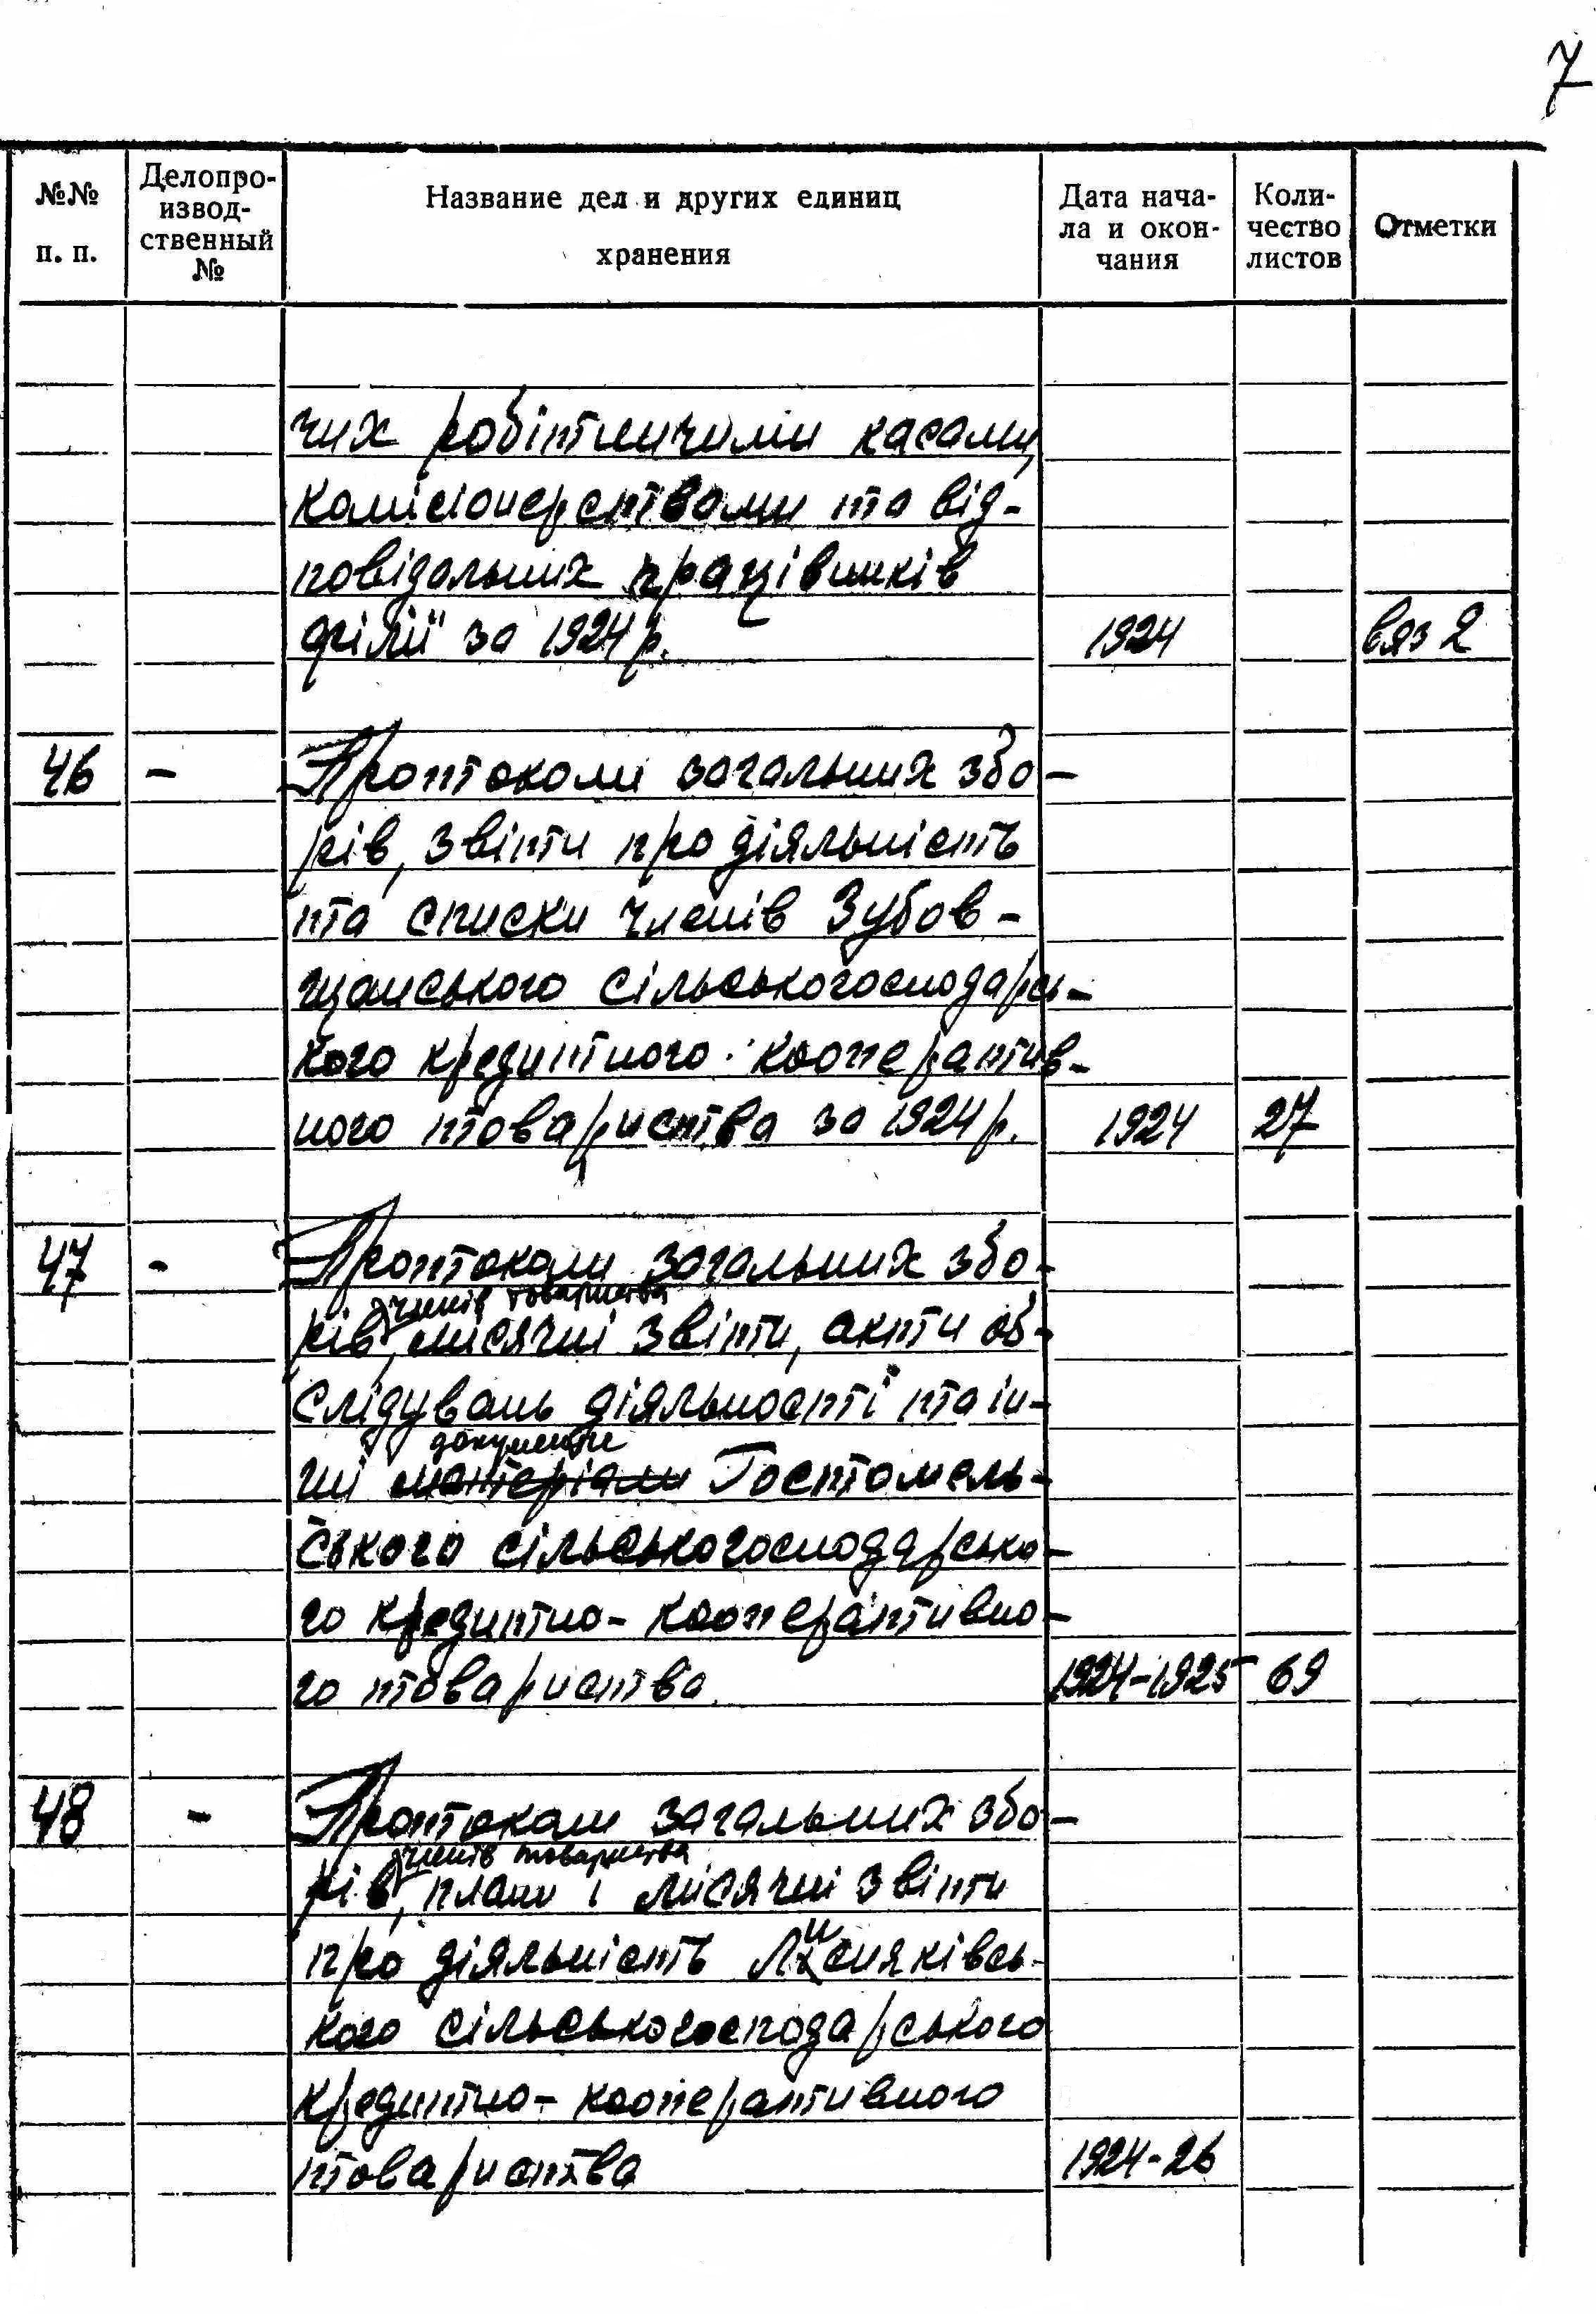 7
№№ п. п.
Делопро-
извод-
ственный
№
Название дел и других единиц
хранения
Дата нача-
ла и окон-
чания
Коли-
чество
листов
Отметки
чих робітничими касами,
комісіонерствами та від-
повідальних працівників
філії за 1924 р. 1924 вяз 2
46 - Протоколи загальних збо-
рів, звіти про діяльність
та списки членів Зубов-
щанського сільськогосподарсь-
кого кредитного кооператив-
ного товариства за 1924 р. 1924 27
47 - Протоколи загальних збо-
членів товариства
рів, місячні звіти, акти об-
слідувань діяльності та ін-
документи
ші матеріали Гостомель-
ського сільськогосподарсько-
го кредитно-кооперативно-
го товариства. 1924-1925 69
48 - Протоколи загальних збо-
членів товариства
рів, плани і місячні звіти
про діяльність Лисняківсь-
кого сільськогосподарського
кредитно-кооперативного
товариства 1924-26